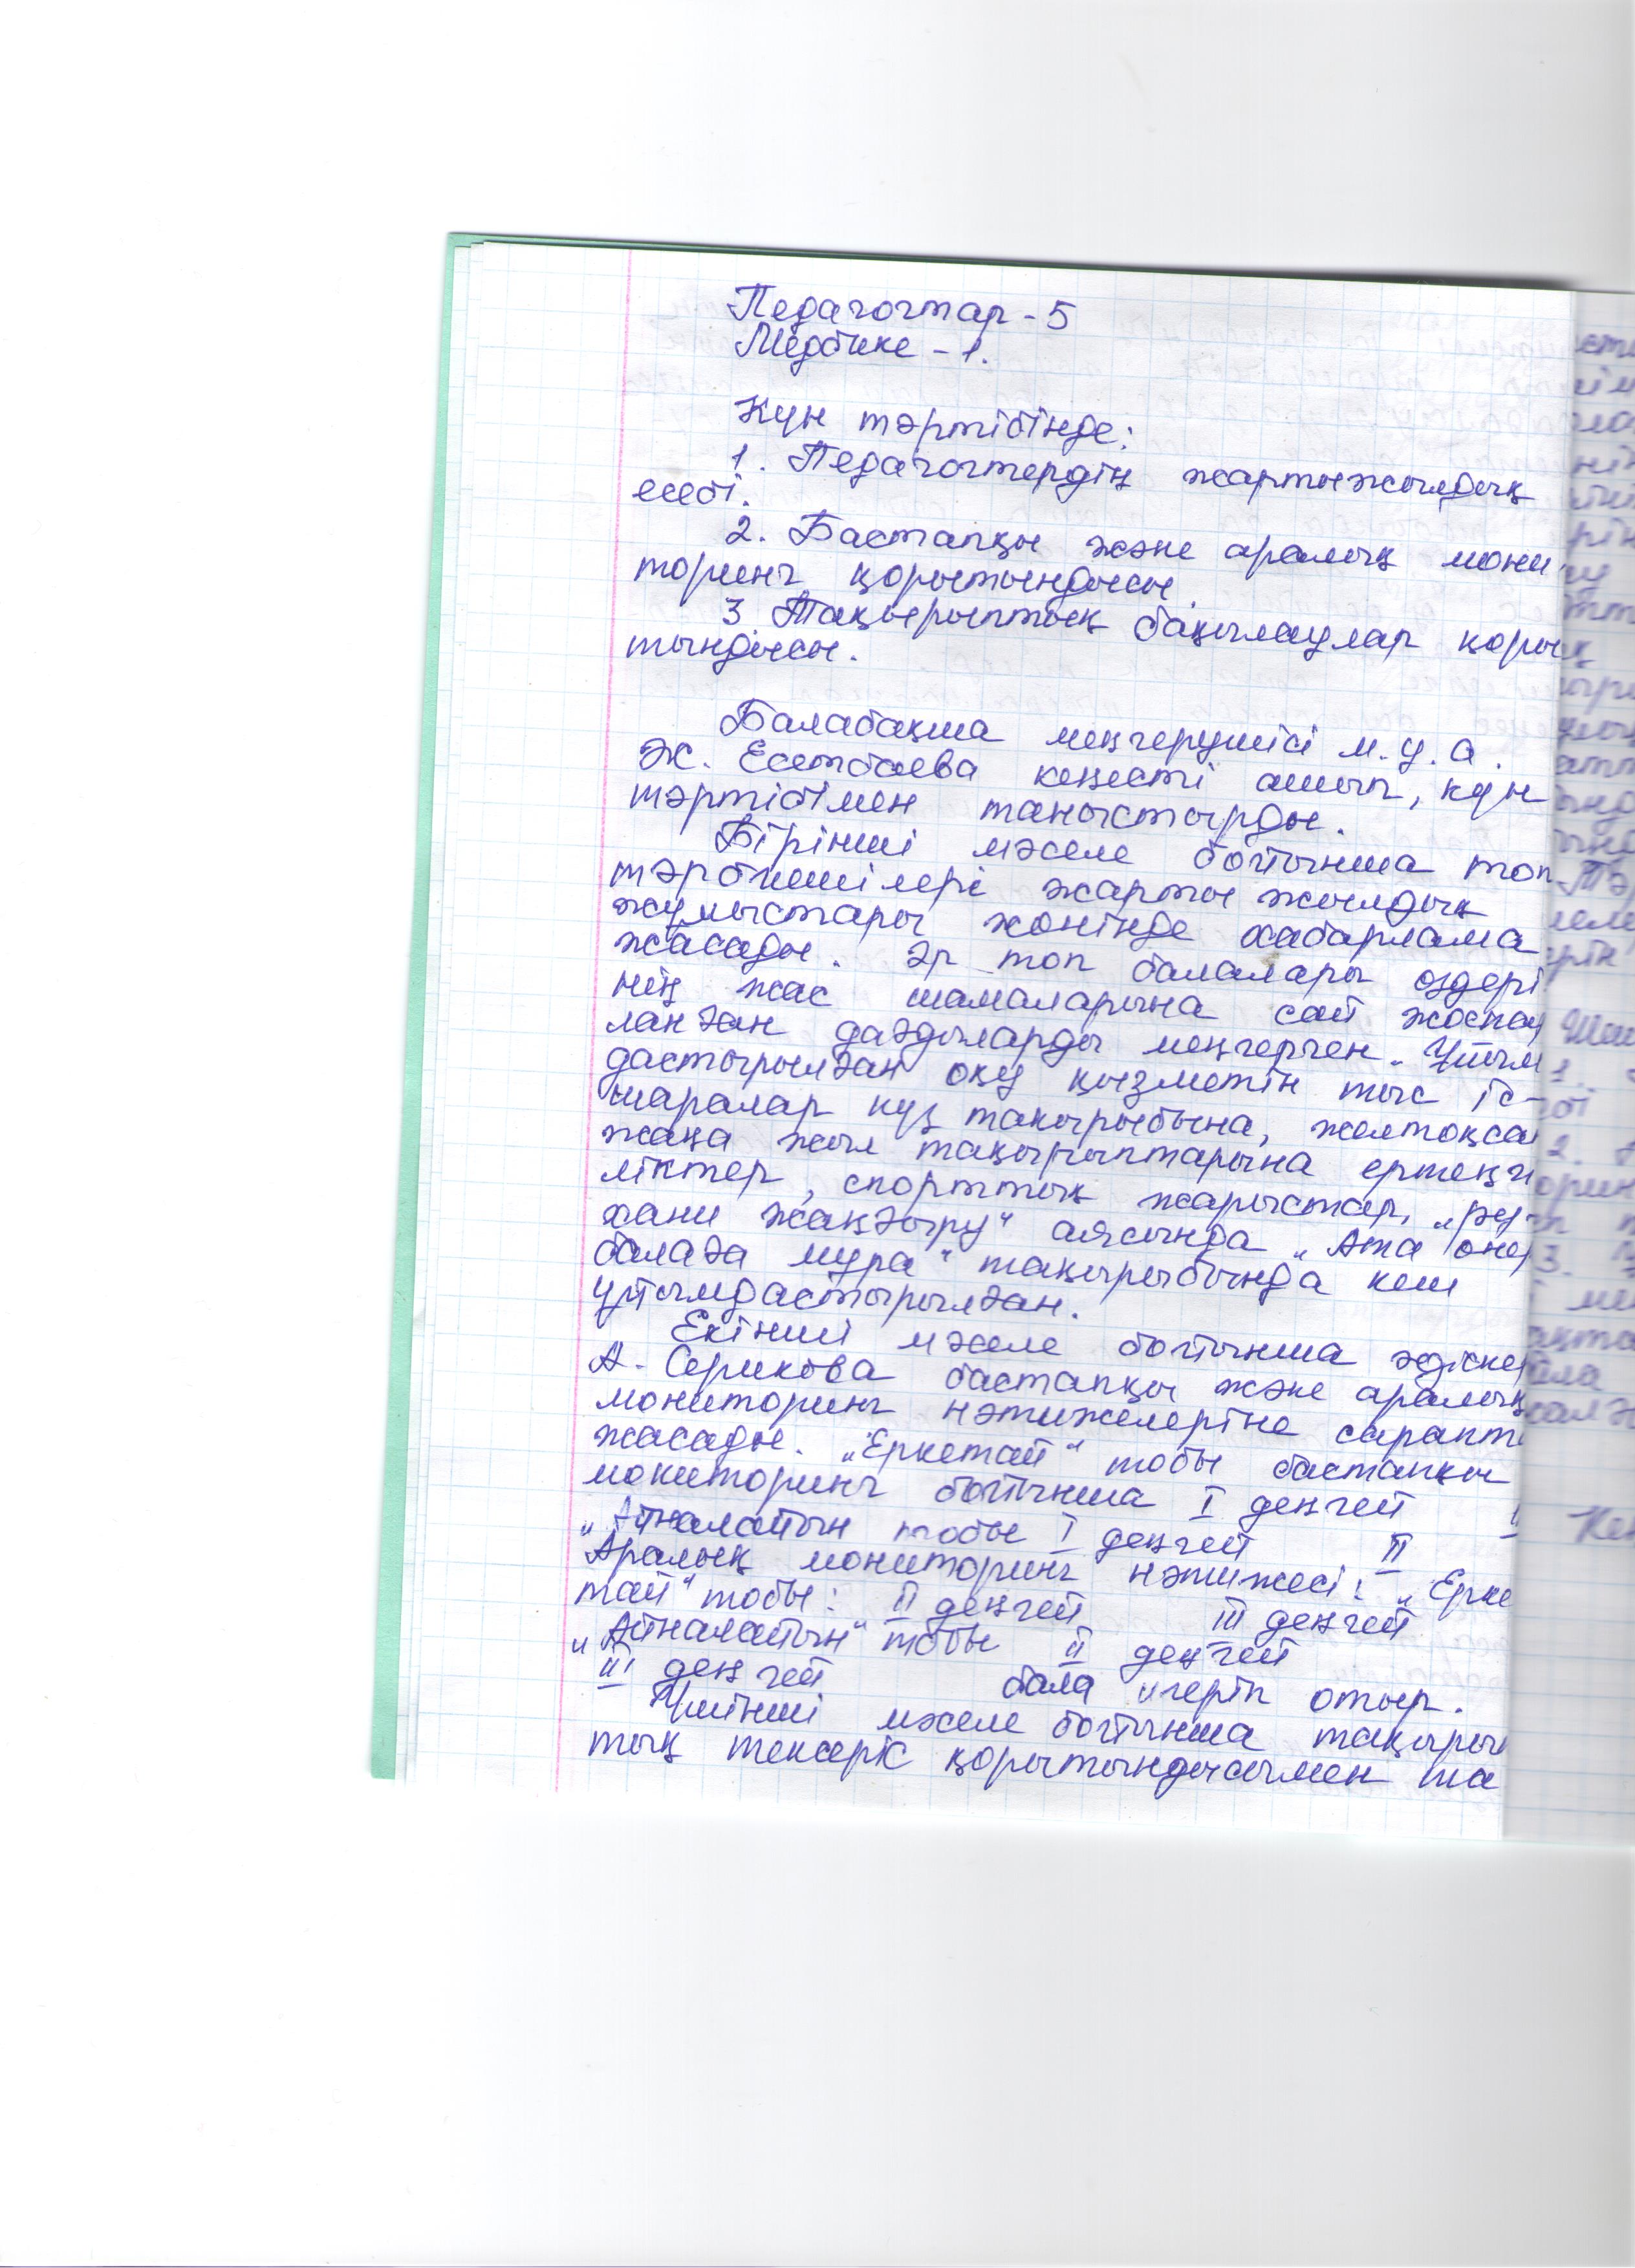 Педагогтар - 5
Медбике - 1.
Күн тәртібінде:
1. Педагогтердің жартыжылдық
есебі.
2. Бастапқы және аралық мони
торинг қорытындысы.
3 Тақырыптық бақылаулар қоры
тындысы.
Балабақша меңгерушісі м.у.а.
Ж. Есетбаева кеңесті ашып, күн
тәртібімен таныстырды.
Бірінші мәселе бойынша топ
тәрбиешілері жарты жылдық
жұмыстары жөнінде хабарлама
жасады. Әр топ балалары өздері
нің жас шамаларына сай жоспар
ланған дағдыларды меңгерген. Ұйым
дастырылған оқу қызметін тыс іс-
шаралар күз тақырыбына, желтоқсан
жаңа жыл тақырыптарына ертеңгі
ліктер, спорттық жарыстар, „Ру-
хани жаңғыру" аясында „Ата өнер
балаға мұра" тақырыбында кеш
ұйымдастырылған.
Екінші мәселе бойынша әдіскер
А. Серикова бастапқы және аралық
мониторинг нәтижелеріне сарапт
жасады. „Еркетай" тобы бастапқы
мониторинг бойынша I деңгей II
„Айналайын тобы I деңгей II
Аралық мониторинг нәтижесі: „Ерке
тай" тобы: II деңгей III деңгей
„Айналайын" тобы II деңгей
III деңгей бала игеріп отыр.
Үшінші мәселе бойынша тақырып
тық тексеріс қорытындысымен та